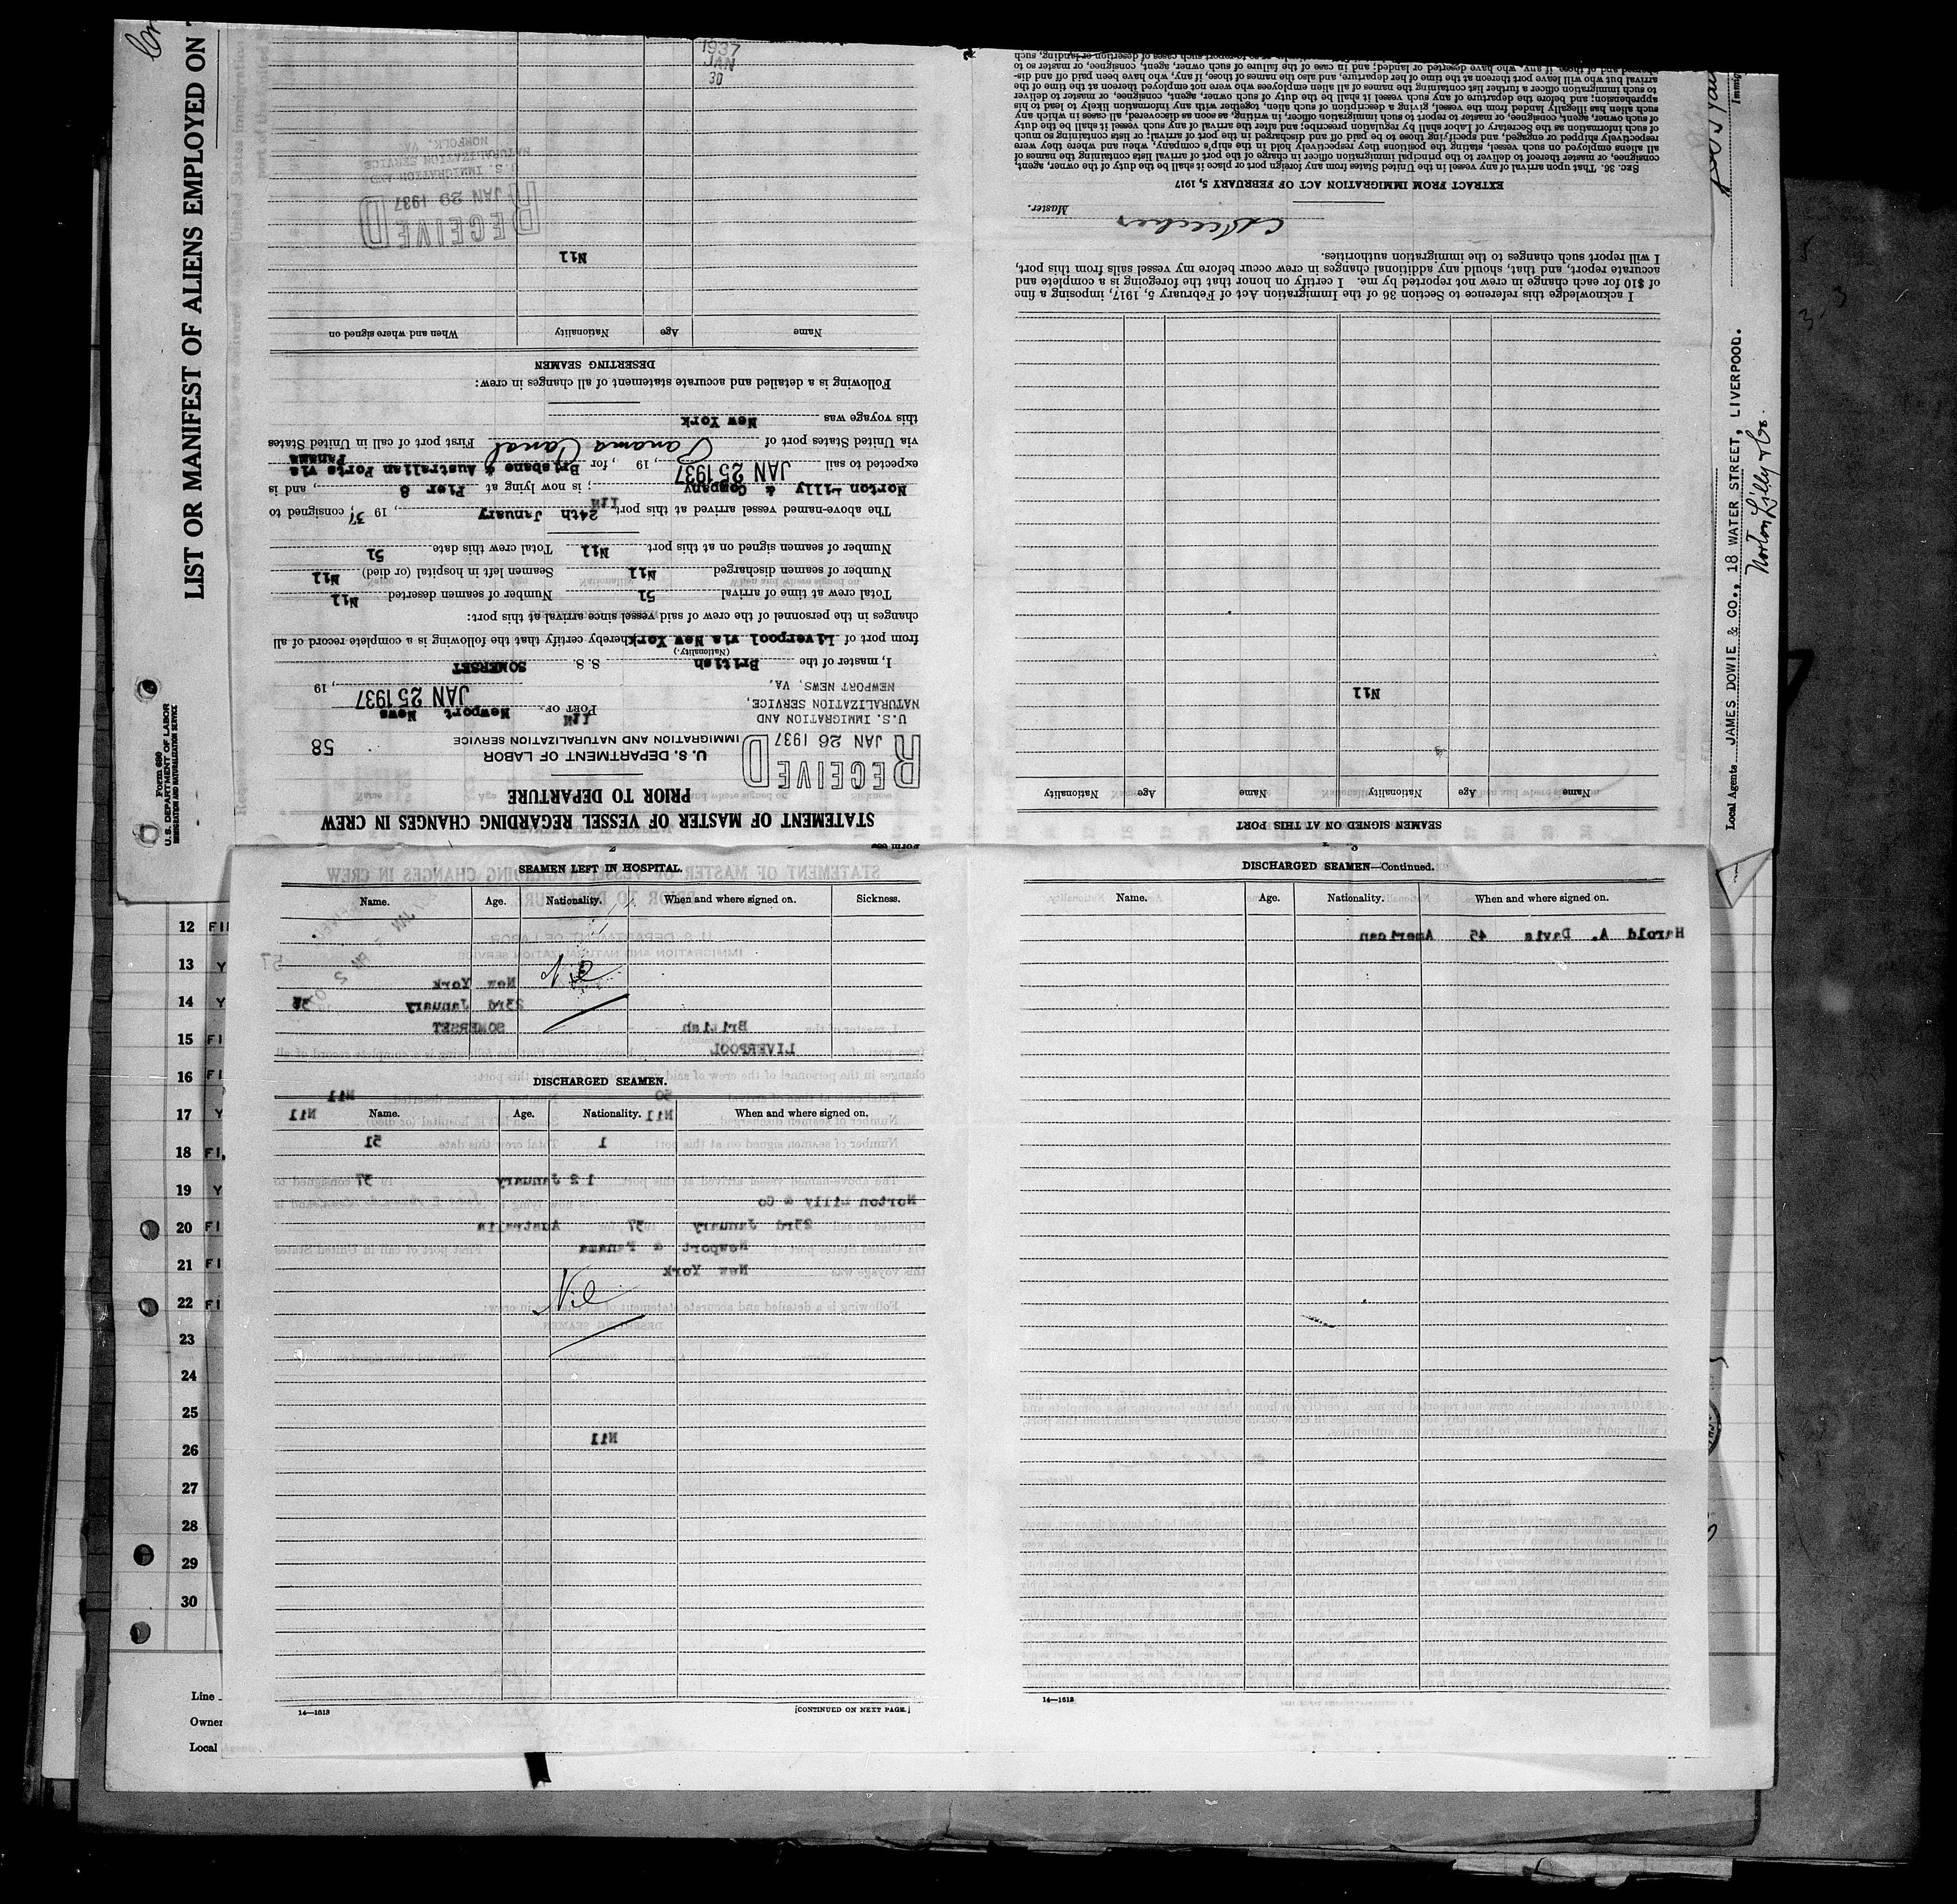 LIST OR MANIFEST OF ALIENS EMPLOYED ON
Form 680
U. S. DEPARTMENT OF LABOR
IMMIGRATION AND NATURALIZATION SERVICE
STATEMENT OF MASTER OF VESSEL REGARDING CHANGES IN CREW
PRIOR TO DEPARTURE
U. S. DEPARTMENT OF LABOR
IMMIGRATION AND NATURALIZATION SERVICE
58
RECEIVED
JAN 26 1937
U. S. IMMIGRATION AND
NATURALIZATION SERVICE,
NEWPORT NEWS, VA.
PORT OF Newport News
JAN 25 1937, 19
I, master of the British S. S. SOMERSET
(Nationality.)
from port of Liverpool via New York hereby certify that the following is a complete record of all
changes in the personnel of the crew of said vessel since arrival at this port:
Total crew at time of arrival 51 Number of seamen deserted Nil
Number of seamen discharged Nil Seamen left in hospital (or died) Nil
Number of seamen signed on at this port Nil Total crew this date 51
The above-named vessel arrived at this port 24th January, 19 37; consigned to
Norton Lilly & Company; is now lying at Pier 8, and is
expected to sail JAN 25 1937, 19 , for Brisbane & Australian Ports via Panama
via United States port of Panama Canal First port of call in United States
this voyage was New York
Following is a detailed and accurate statement of all changes in crew:
DESERTING SEAMEN
Name Age Nationality When and where signed on
Nil
RECEIVED
JAN 29 1937
U. S. IMMIGRATION AND
NATURALIZATION SERVICE
NORFOLK, VA.
1937
JAN
30
SEAMEN SIGNED ON AT THIS PORT
Name Age Nationality Name Age Nationality
Nil
I acknowledge this reference to Section 36 of the Immigration Act of February 5, 1917, imposing a fine
of $10 for each change in crew not reported by me. I certify on honor that the foregoing is a complete and
accurate report, and that, should any additional changes in crew occur before my vessel sails from this port,
I will report such changes to the immigration authorities.
Master.
EXTRACT FROM IMMIGRATION ACT OF FEBRUARY 5, 1917
SEC. 36. That upon arrival of any vessel in the United States from any foreign port or place it shall be the duty of the owner, agent,
consignee, or master thereof to deliver to the principal immigration officer in charge of the port of arrival lists containing the names of
all aliens employed on such vessel, stating the positions they respectively hold in the ship's company, when and where they were
respectively shipped or engaged, and specifying those to be paid off and discharged in the port of arrival; or lists containing so much
of such information as the Secretary of Labor shall by regulation prescribe; and after the arrival of any such vessel it shall be the duty
of such owner, agent, consignee, or master to report to such immigration officer, in writing, as soon as discovered, all cases in which any
such alien has illegally landed from the vessel, giving a description of such alien, together with any information likely to lead to his
apprehension; and before the departure of any such vessel it shall be the duty of such owner, agent, consignee, or master to deliver
to such immigration officer a further list containing the names of all alien employees who were not employed thereon at the time of the
arrival but who will leave port thereon at the time of her departure, and also the names of those, if any, who have been paid off and dis-
charged and of those, if any, who have deserted or landed; and in case of the failure of such owner, agent, consignee, or master so to
Local Agents JAMES DOWIE & CO., 18 WATER STREET, LIVERPOOL.
Norton Lilly & Co.
Immig
SEAMEN LEFT IN HOSPITAL.
Name. Age. Nationality. When and where signed on. Sickness.
Nil
New York
23rd January
SOMERSET
British
LIVERPOOL
DISCHARGED SEAMEN.
Name. Age. Nationality. When and where signed on.
50 Nil
Nil Nil
1 51
12 January 37
Norton Lilly & Co
23rd January 37 Australia
Newport & Panama
New York
Nil
Nil
14—1613
[CONTINUED ON NEXT PAGE.]
DISCHARGED SEAMEN—Continued.
Name. Age. Nationality. When and where signed on.
Harold A. Davis 45 American
14—1613
12
13
14
15
16
17
18
19
20
21
22
23
24
25
26
27
28
29
30
Line
Owner
Local